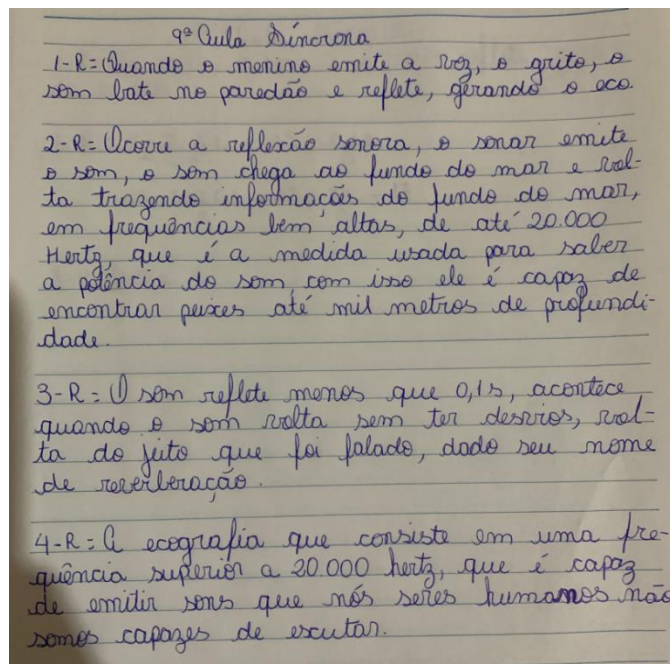 9ª Aula Síncrona
1-R= Quando o menino emite a voz, o grito, o
som bate no paredão e reflete, gerando o eco.
2-R= Ocorre a reflexão sonora, o sonar emite
o som, o som chega ao fundo do mar e vol-
ta trazendo informações do fundo do mar,
em frequências bem altas, de até 20.000
Hertz, que é a medida usada para saber
a potência do som, com isso ele é capaz de
encontrar peixes até mil metros de profundi-
dade.
3-R= O som reflete menos que 0,1s, acontece
quando o som volta sem ter desvios, vol-
ta do jeito que foi falado, dado seu nome
de reverberação.
4-R= A ecografia que consiste em uma fre-
quência superior a 20.000 hertz, que é capaz
de emitir sons que nós seres humanos não
somos capazes de escutar.